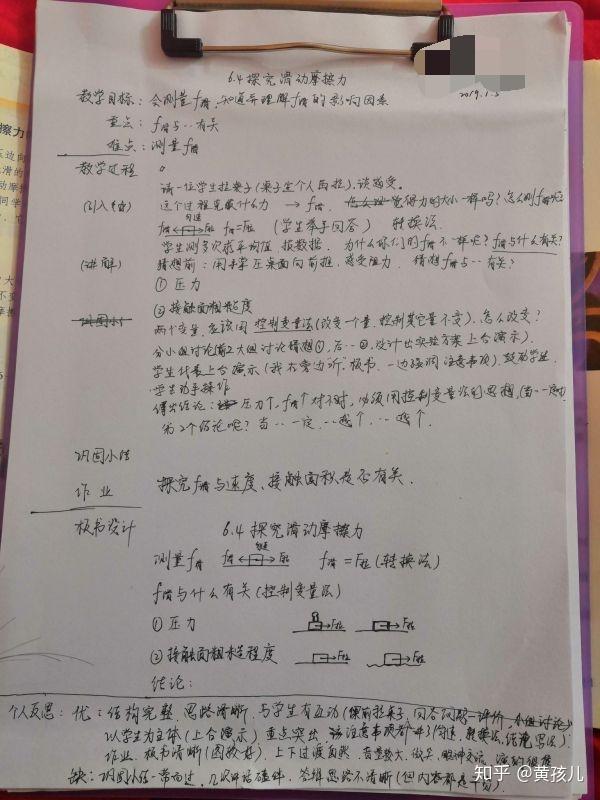 6.4 探究滑动摩擦力
2019.1.5
教学目标：会测量f滑，知道并理解f滑的影响因素
重点：f滑与…有关
难点：测量f滑
教学过程
请一位学生拉桌子(桌子坐个人再拉)，谈感受。
(引入) 这个过程克服什么力 → f滑. 觉得力的大小一样吗？怎么测f滑呢
匀速
f滑 F拉 f滑=F拉 (学生举手回答) 转换法.
学生测多次求平均值 报数据. 为什么你们的f滑不一样呢？f滑与什么有关？
(讲解) 猜想前：用手掌压桌面向前推，感受阻力. 猜想f滑与…有关？
① 压力
巩固小结
② 接触面粗糙程度
两个变量，应该用控制变量法(改变一个量，控制其它量不变). 怎么改变？
分小组讨论(前2大组讨论猜想①，后…②，设计出实验方案上台演示).
学生代表上台演示(我在旁边听 板书. 一边强调注意事项). 鼓励学生.
学生动手操作
得出结论：压力↑，f滑↑ 对不对，必须用控制变量法的思想，(当…一定时)
第2个结论呢？当…一定，…越↑，…越↑.
巩固小结
作业 探究f滑与速度、接触面积是否有关.
板书设计 6.4 探究滑动摩擦力
匀速
测量f滑 f滑 F拉 f滑=F拉(转换法)
f滑与什么有关(控制变量法)
① 压力 F拉 F拉
② 接触面粗糙程度 F拉 F拉
结论：
个人反思：优：结构完整，思路清晰，与学生有互动(课前拉桌子，回答问题-评价，小组讨论)
以学生为主体(上台演示) 重点突出 该注意事项都讲了(匀速，转换法，结论写法).
作业、板书清晰(图较好)，上下过渡自然，音量较大，微笑，眼神交流，
缺：巩固小结一带而过，几次 磕绊，答辩思路不清晰(但内容都
知乎 @黄孩儿